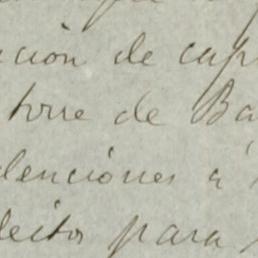 ción de cap
torre de Ba
lenciones á
leitos para